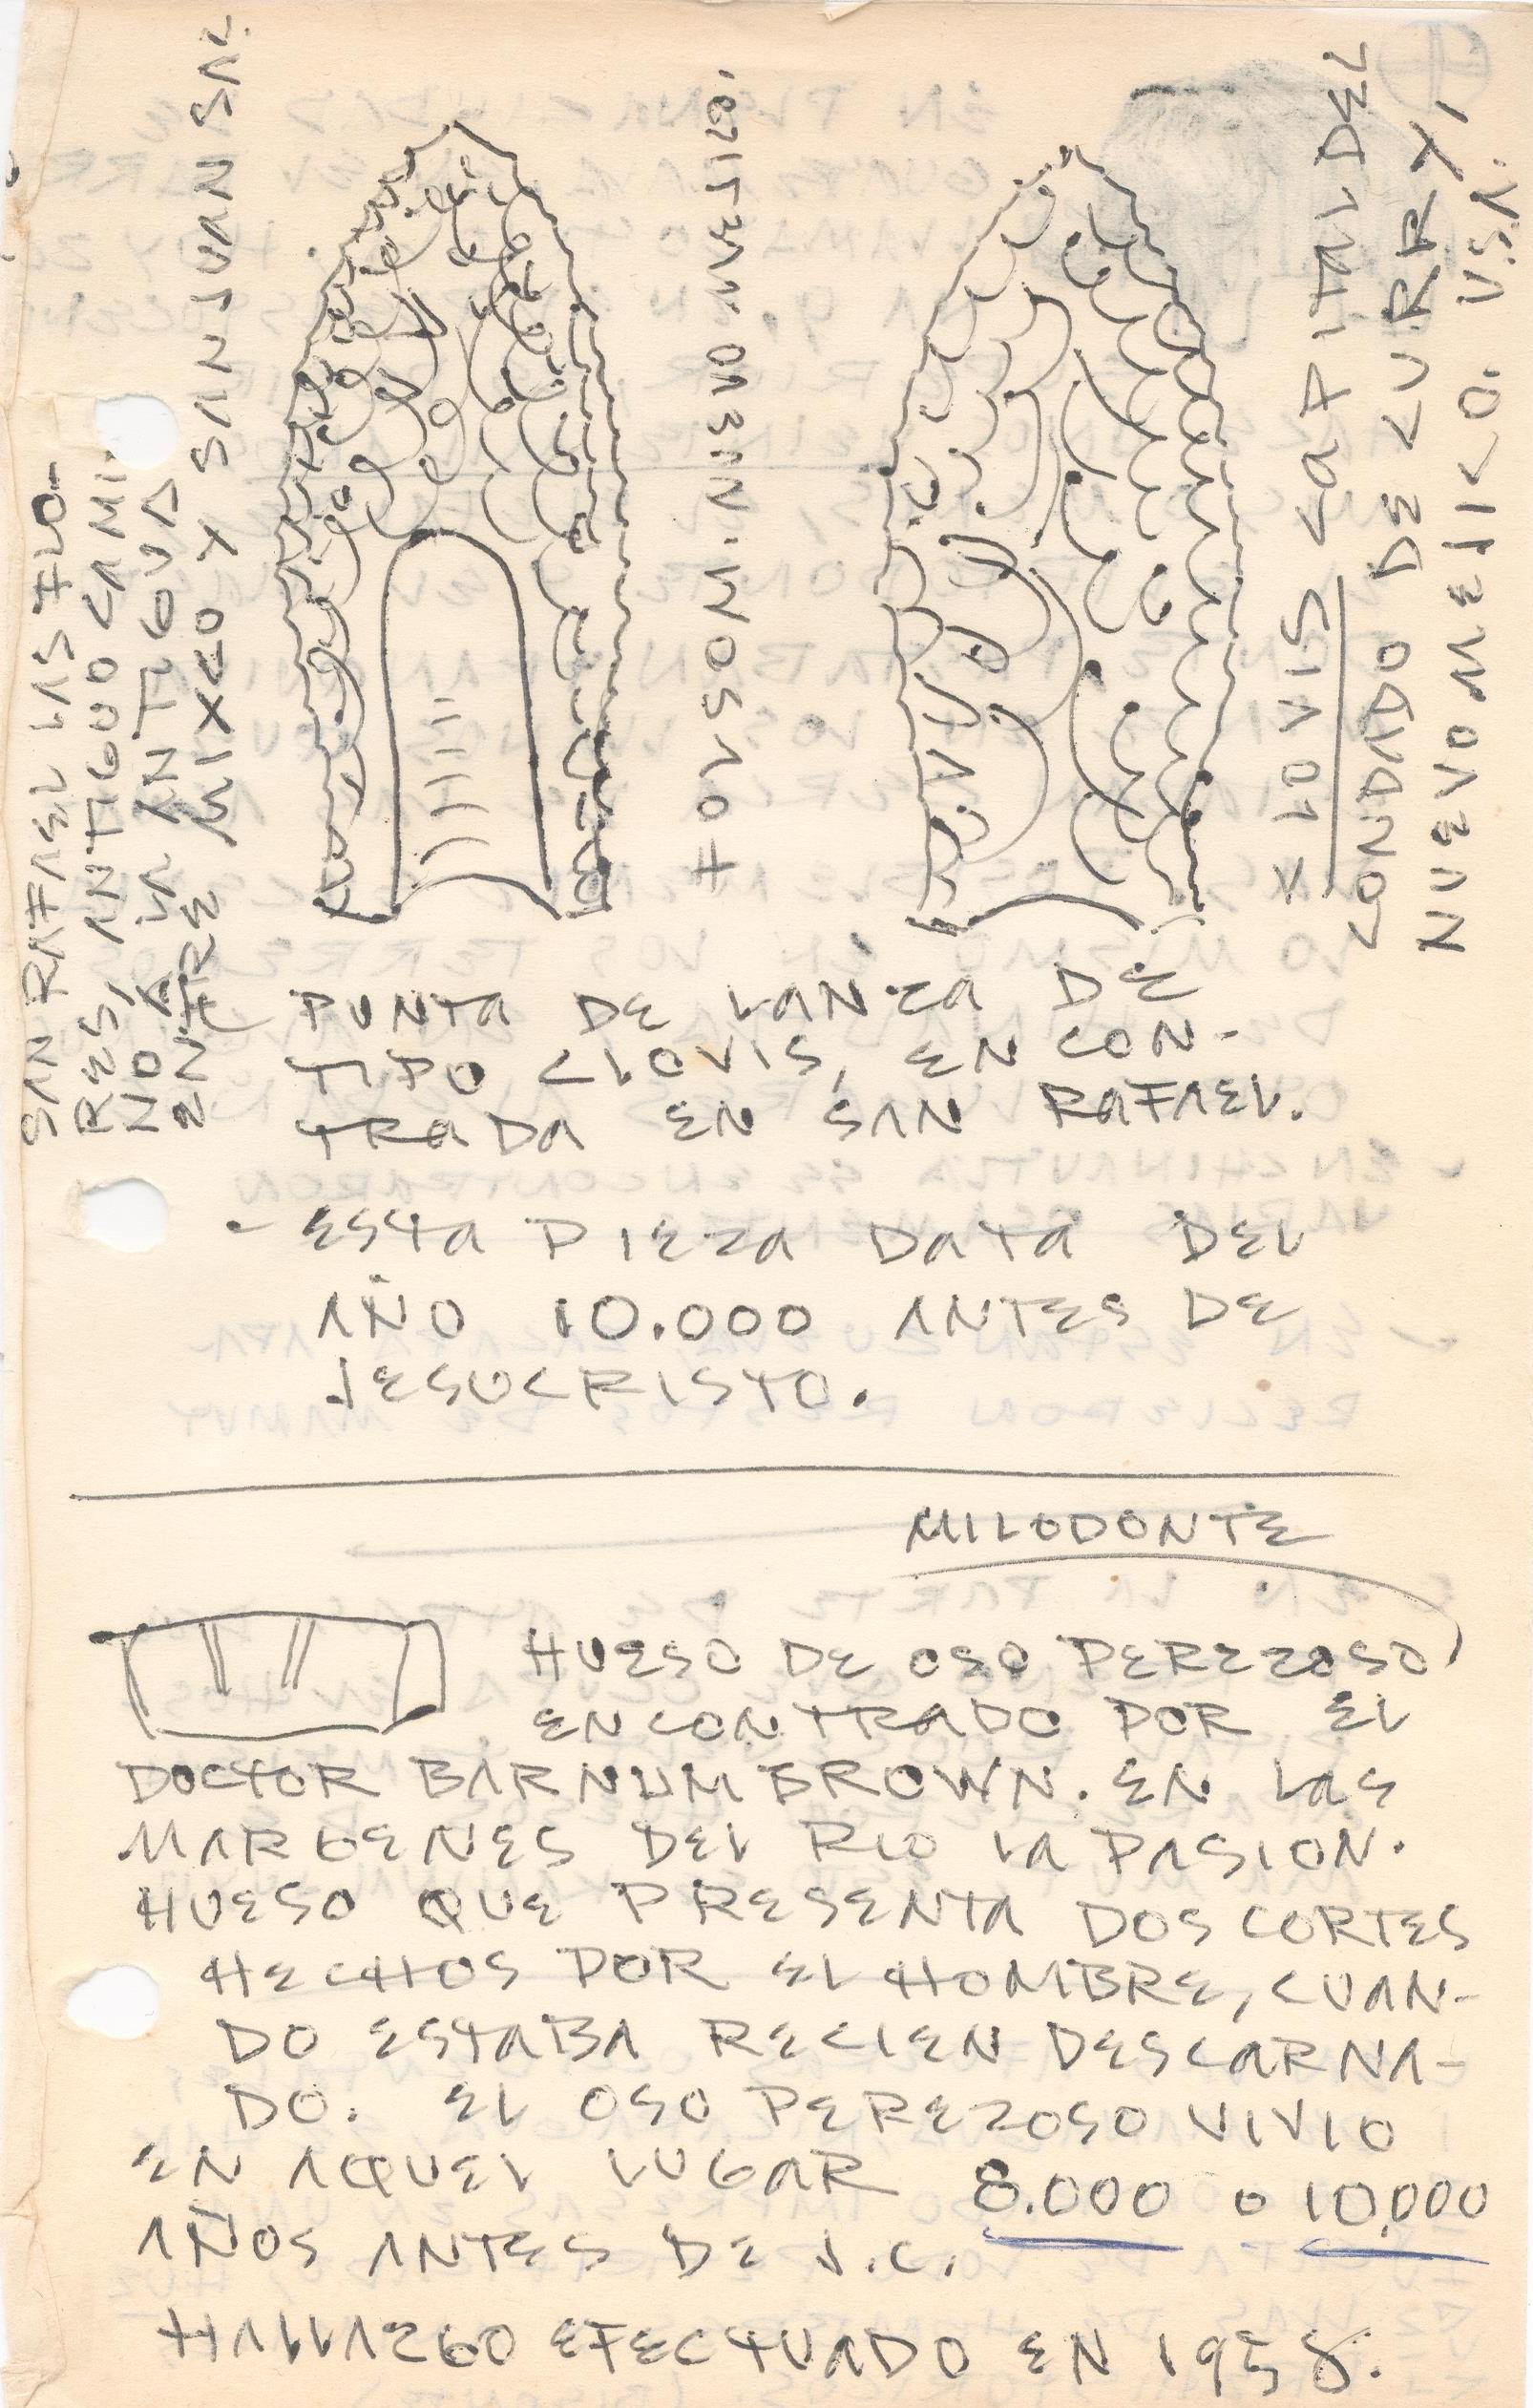 SAN RAFAEL LAS FLO-
RES, ANTIGUO CAMI-
NO A LA ANTIGUA
ENTRE MIXCO Y SAN JUAN SAC.
HOLSOM. NUEVO MEJICO.
* CLOVIS CAPITAL DEL
CONDADO DE CURRY,
NUEVO MEJICO. USA.
PUNTA DE LANZA DE
TIPO CLOVIS, EN CON-
TRADA EN SAN RAFAEL.
- ESTA PIEZA DATA DEL
AÑO 10.000 ANTES DE
JESUCRISTO.
MILODONTE
HUESO DE OSO PEREZOSO
ENCONTRADO POR EL
DOCTOR BARNUM BROWN. EN LAS
MARGENES DEL RIO LA PASION.
HUESO QUE PRESENTA DOS CORTES
HECHOS POR EL HOMBRE, CUAN-
DO ESTABA RECIEN DESCARNA-
DO. EL OSO PEREZOSO VIVIO
EN AQUEL LUGAR 8.000 O 10.000
AÑOS ANTES DE J.C.
HALLAZGO EFECTUADO EN 1958.